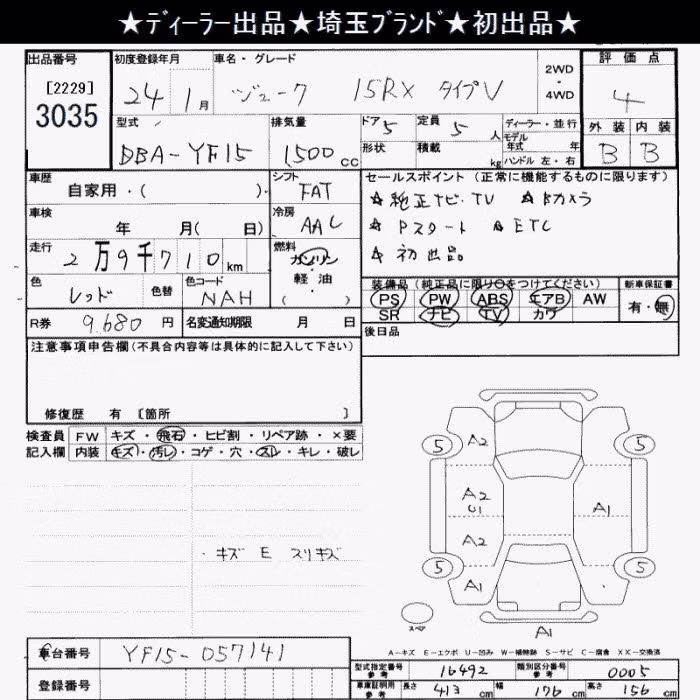 ★ディーラー出品★埼玉ブランド★初出品★
出品番号 初度登録年月 車名・グレード 2WD・4WD 評価点
[2229] 3035 24年1月 ジューク 15RX タイプV 4
型式 排気量 ドア 5 定員 5人 ディーラー・並行 外装 内装
DBA-YF15 1500cc 形状 積載 kg モデル年式 年 ハンドル 左・右 B B
車歴 自家用・( ) シフト FAT セールスポイント(正常に機能するものに限ります)
車検 年 月(日) 冷房 AAC ☆純正ナビ・TV ☆Bカメラ
☆Pスタート ☆ETC
走行 2万9千710km 燃料 ガソリン・軽油・( ) ☆初出品
色 レッド 色替 色コード NAH 装備品(純正品に限り○をつけてください) 新車保証書
PS PW ABS エアB AW 有・無
SR ナビ TV カワ
R券 9,680円 名変通知期限 月 日 後日品
注意事項申告欄(不具合内容等は具体的に記入して下さい)
修復歴 有 [箇所 ]
検査員 FW キズ・飛石・ヒビ割・リペア跡・×要
記入欄 内装 キズ・汚レ・コゲ・穴・スレ・キレ・破レ
5 A2 5
A2 U1 A1
A2
5 A1 5
・キズ E スリキズ
スペア A1
A-キズ E-エクボ U-凹み W-補修跡 S-サビ C-腐食 XX-交換済
車台番号 YF15-057141
型式指定番号 参考 16492 類別区分番号 参考 0005
登録番号 車庫証明用 参考 長さ 413cm 幅 176cm 高さ 156cm